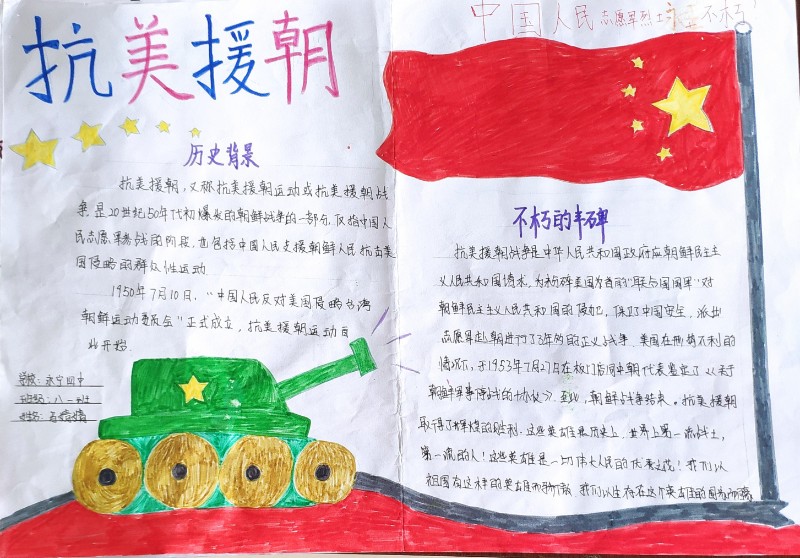 抗美援朝
中国人民志愿军烈士永垂不朽
历史背景
抗美援朝,又称抗美援朝运动或抗美援朝战
争是20世纪50年代初爆发的朝鲜战争的一部分,仅指中国人
民志愿军参战的阶段,也包括中国人民支援朝鲜人民抗击美
国侵略的群众性运动
1950年7月10日,“中国人民反对美国侵略台湾
朝鲜运动委员会”正式成立,抗美援朝运动自
此开始.
学校:永宁四中
班级:八一班
姓名:
不朽的丰碑
抗美援朝战争是中华人民共和国政府应朝鲜民主主
义人民共和国请求,为粉碎美国为首的“联合国国军”对
朝鲜民主主义人民共和国的侵犯,保卫中国安全,派出
志愿军赴朝进行了3年的正义战争.美国在形势不利的
情况下,于1953年7月27日在板门店同中朝代表签定了《关于
朝鲜军事停战的协议》.至此,朝鲜战争结束。抗美援朝
取得了辉煌的胜利.这些英雄是历史上,世界上第一流战士,
第一流的人!这些英雄是一切伟大人民的优秀之花!我们以
祖国有这样的英雄而骄傲.我们以生存在这个英雄的国为